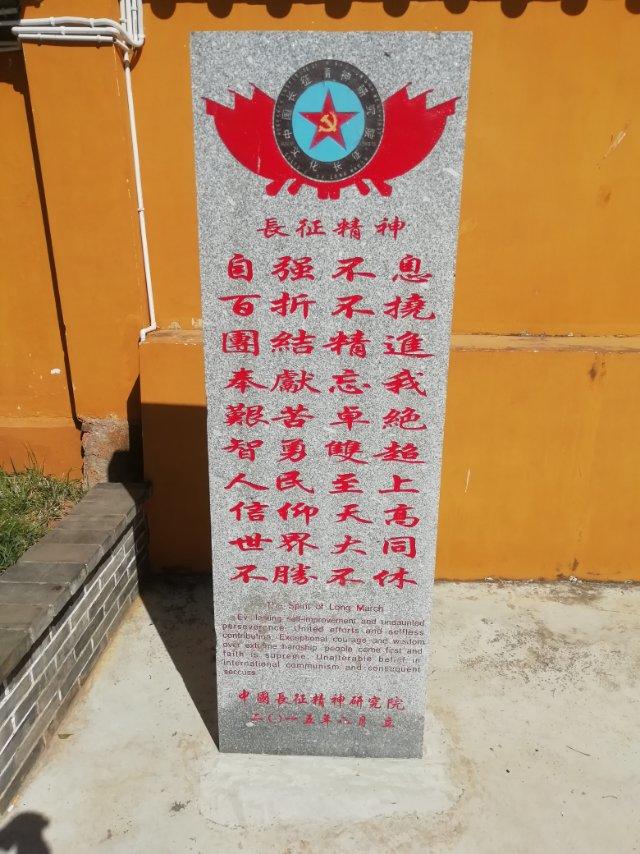 中国长征精神研究院
長征精神
自強不息
百折不撓
團結精進
奉獻忘我
艱苦卓絕
智勇雙超
人民至上
信仰天高
世界大同
不勝不休
The Spirit of Long March
Ev lasting self-improvement and undaunted
perseverance. United efforts and selfless
contribution. Exceptional courage and wisdom
over extreme hardship people come first and
faith is supreme. Unalterable belief in
international communism and consequent
seccuss.
中國長征精神研究院
二〇一五年 月 立